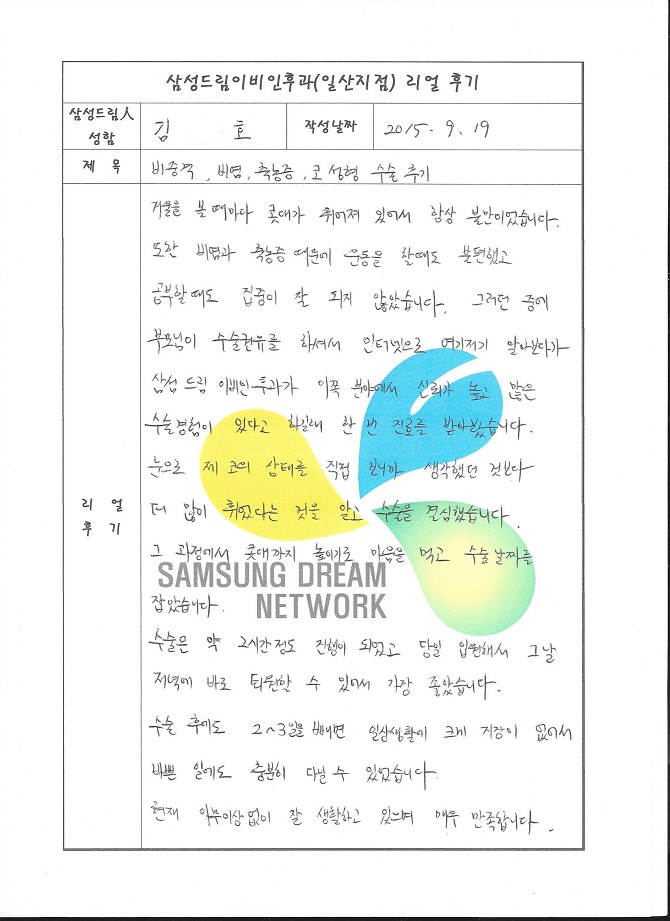 삼성드림이비인후과(일산지점) 리얼 후기
삼성드림人 성함
김 호
작성날짜
2015. 9. 19
제 목
비중격, 비염, 축농증, 코 성형 수술 후기
리 얼
후 기
거울을 볼 때마다 콧대가 휘어져 있어서 항상 불만이었습니다.
또한 비염과 축농증 때문에 운동을 할때도 불편했고
공부할때도 집중이 잘 되지 않았습니다. 그러던 중에
부모님이 수술권유를 하셔서 인터넷으로 여기저기 알아보다가
삼성드림 이비인후과가 이쪽 분야에서 신뢰가 높고 많은
수술경험이 있다고 하길래 한 번 진료를 받아봤습니다.
눈으로 제 코의 상태를 직접 보니까 생각했던 것보다
더 많이 휘었다는 것을 알고 수술을 결심했습니다.
그 과정에서 콧대까지 높이기로 마음을 먹고 수술날짜를
잡았습니다.
수술은 약 2시간정도 진행이 되었고 당일 입원해서 그날
저녁에 바로 퇴원할 수 있어서 가장 좋았습니다.
수술 후에도 2~3일을 빼면 일상생활에 크게 지장이 없어서
바쁜 일에도 충분히 다닐 수 있었습니다.
현재 아무이상없이 잘 생활하고 있으며 매우 만족합니다.
SAMSUNG DREAM
NETWORK